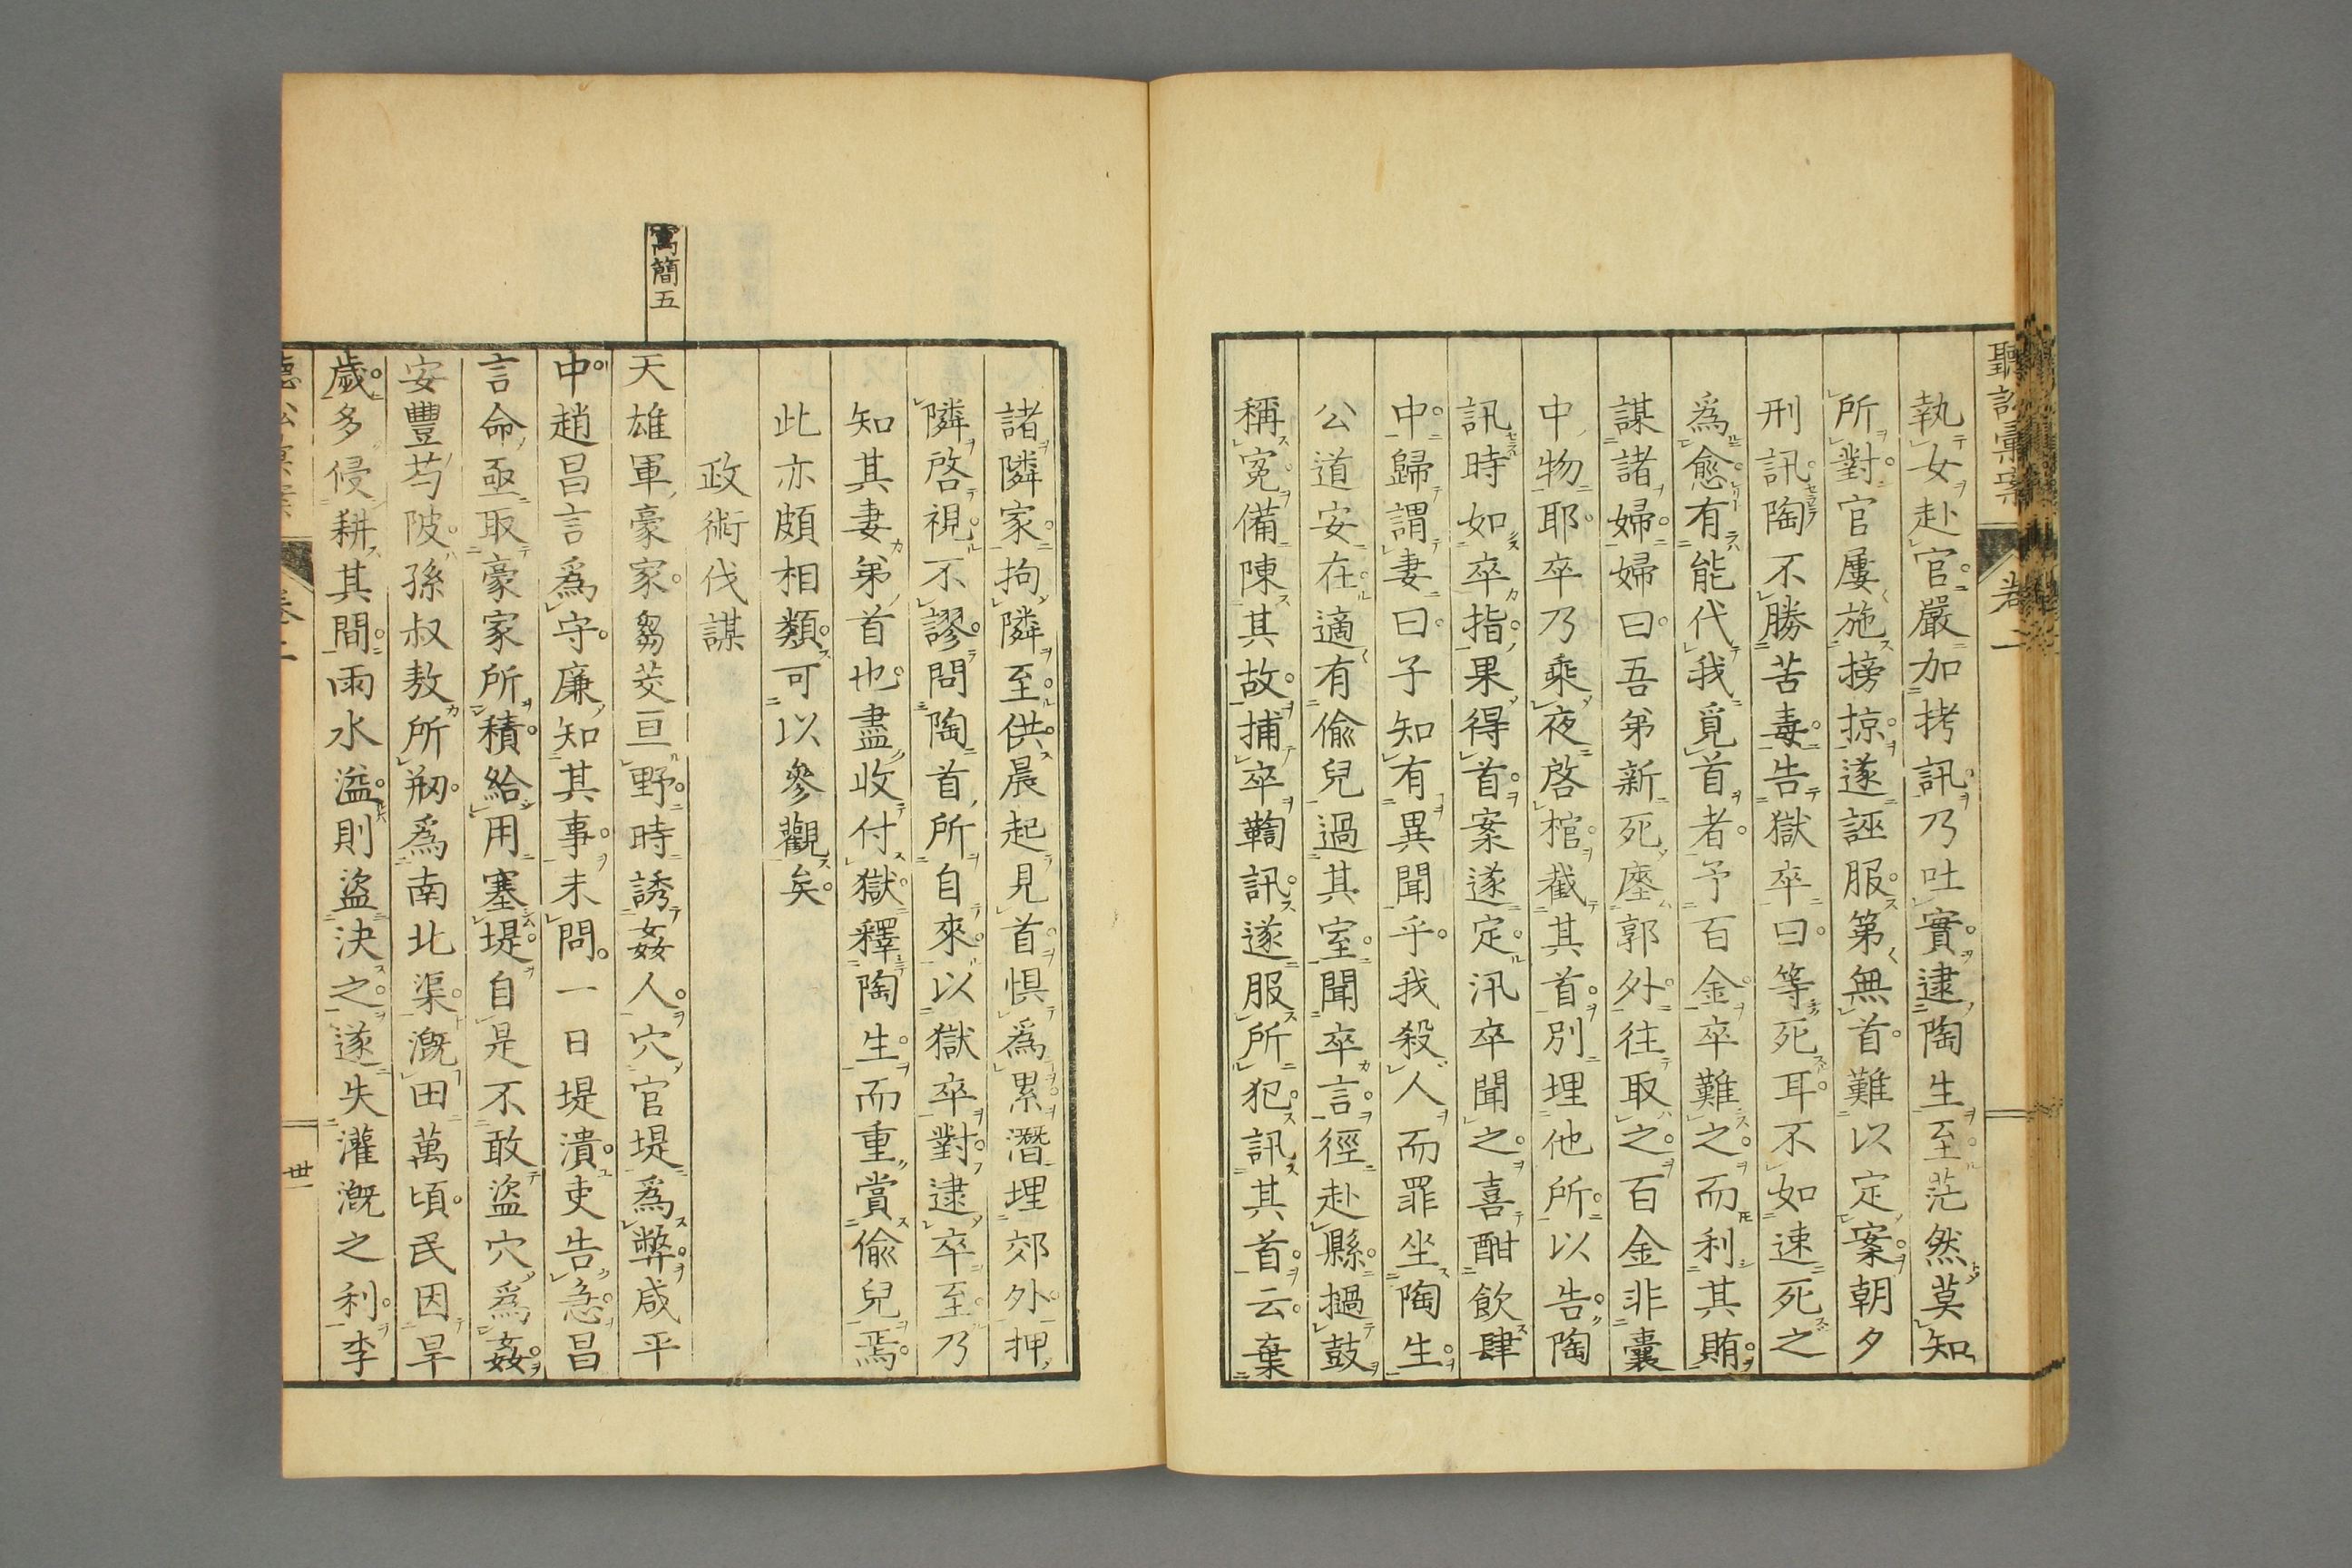 執女赴官嚴加拷訊乃吐實逮陶生至茫然莫知
所對官屢施搒掠遂誣服第無首難以定案朝夕
刑訊陶不勝苦毒告獄卒曰等死耳不如速死之
爲愈有能代我覓首者予百金卒難之而利其賄
謀諸婦婦曰吾弟新死塵郭外往取之百金非囊
中物耶卒乃乘夜啓棺截其首別埋他所以告陶
訊時如卒指果得首案遂定汛卒聞之喜酣飲肆
中歸謂妻曰子知有異聞乎我殺人而罪坐陶生
公道安在適有偸兒過其室聞卒言徑赴縣撾鼓
稱寃備陳其故捕卒鞫訊遂服所犯訊其首云棄
諸隣家拘隣至供晨起見首惧爲累潛埋郊外押
隣啓視不謬問陶首所自來以獄卒對逮卒至乃
知其妻弟首也盡收付獄釋陶生而重賞偸兒焉
此亦頗相類可以參觀矣
政術伐謀
寓簡五
天雄軍豪家芻茭亘野時誘姦人穴官堤爲弊咸平
中趙昌言爲守廉知其事未問一日堤潰吏告急昌
言命亟取豪家所積給用塞堤自是不敢盜穴爲姦
安豐芍陂孫叔敖所剏爲南北渠漑田萬頃民因旱
歲多侵耕其間雨水溢則盜決之遂失灌漑之利李